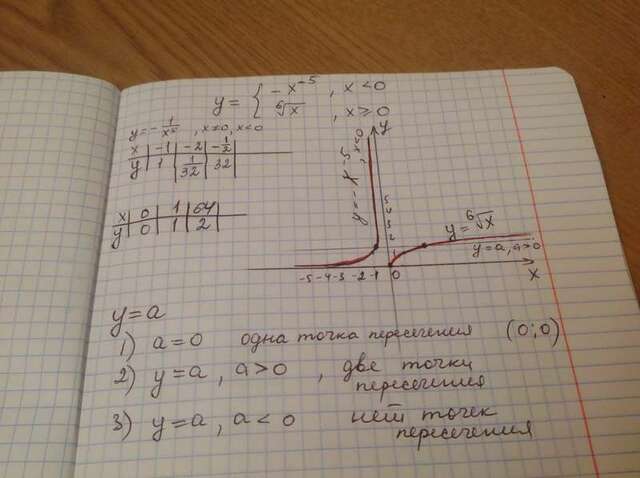 y = { -x⁻⁵ , x < 0
⁶√x , x ≥ 0
y = -1/x⁵ , x≠0, x<0
x | -1 | -2 | -1/2
y | 1 | 1/32 | 32
x | 0 | 1 | 64
y | 0 | 1 | 2
y
y = -x⁻⁵, x<0
5
4
3
2
1
y = ⁶√x
y = a, a>0
-5 -4 -3 -2 -1 0 x
y = a
1) a = 0 одна точка пересечения (0;0)
2) y = a, a > 0 , две точки
пересечения
3) y = a, a < 0 нет точек
пересечения